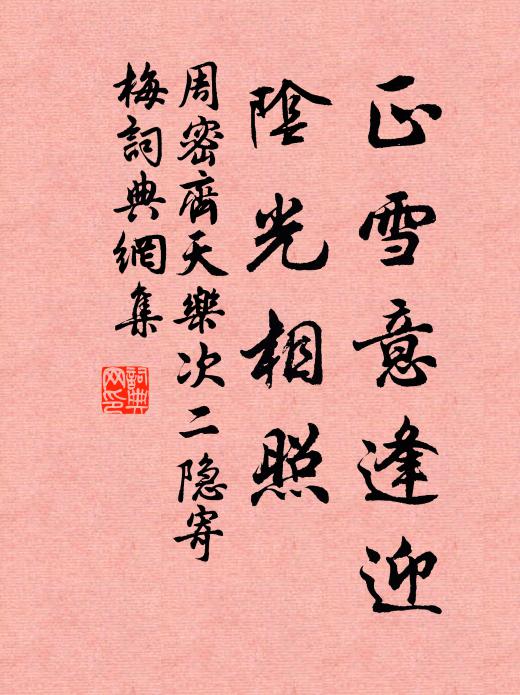 正雪意逢迎
陰光相照
周密齊天樂次二隐寄
梅詞典網集
詞典網印